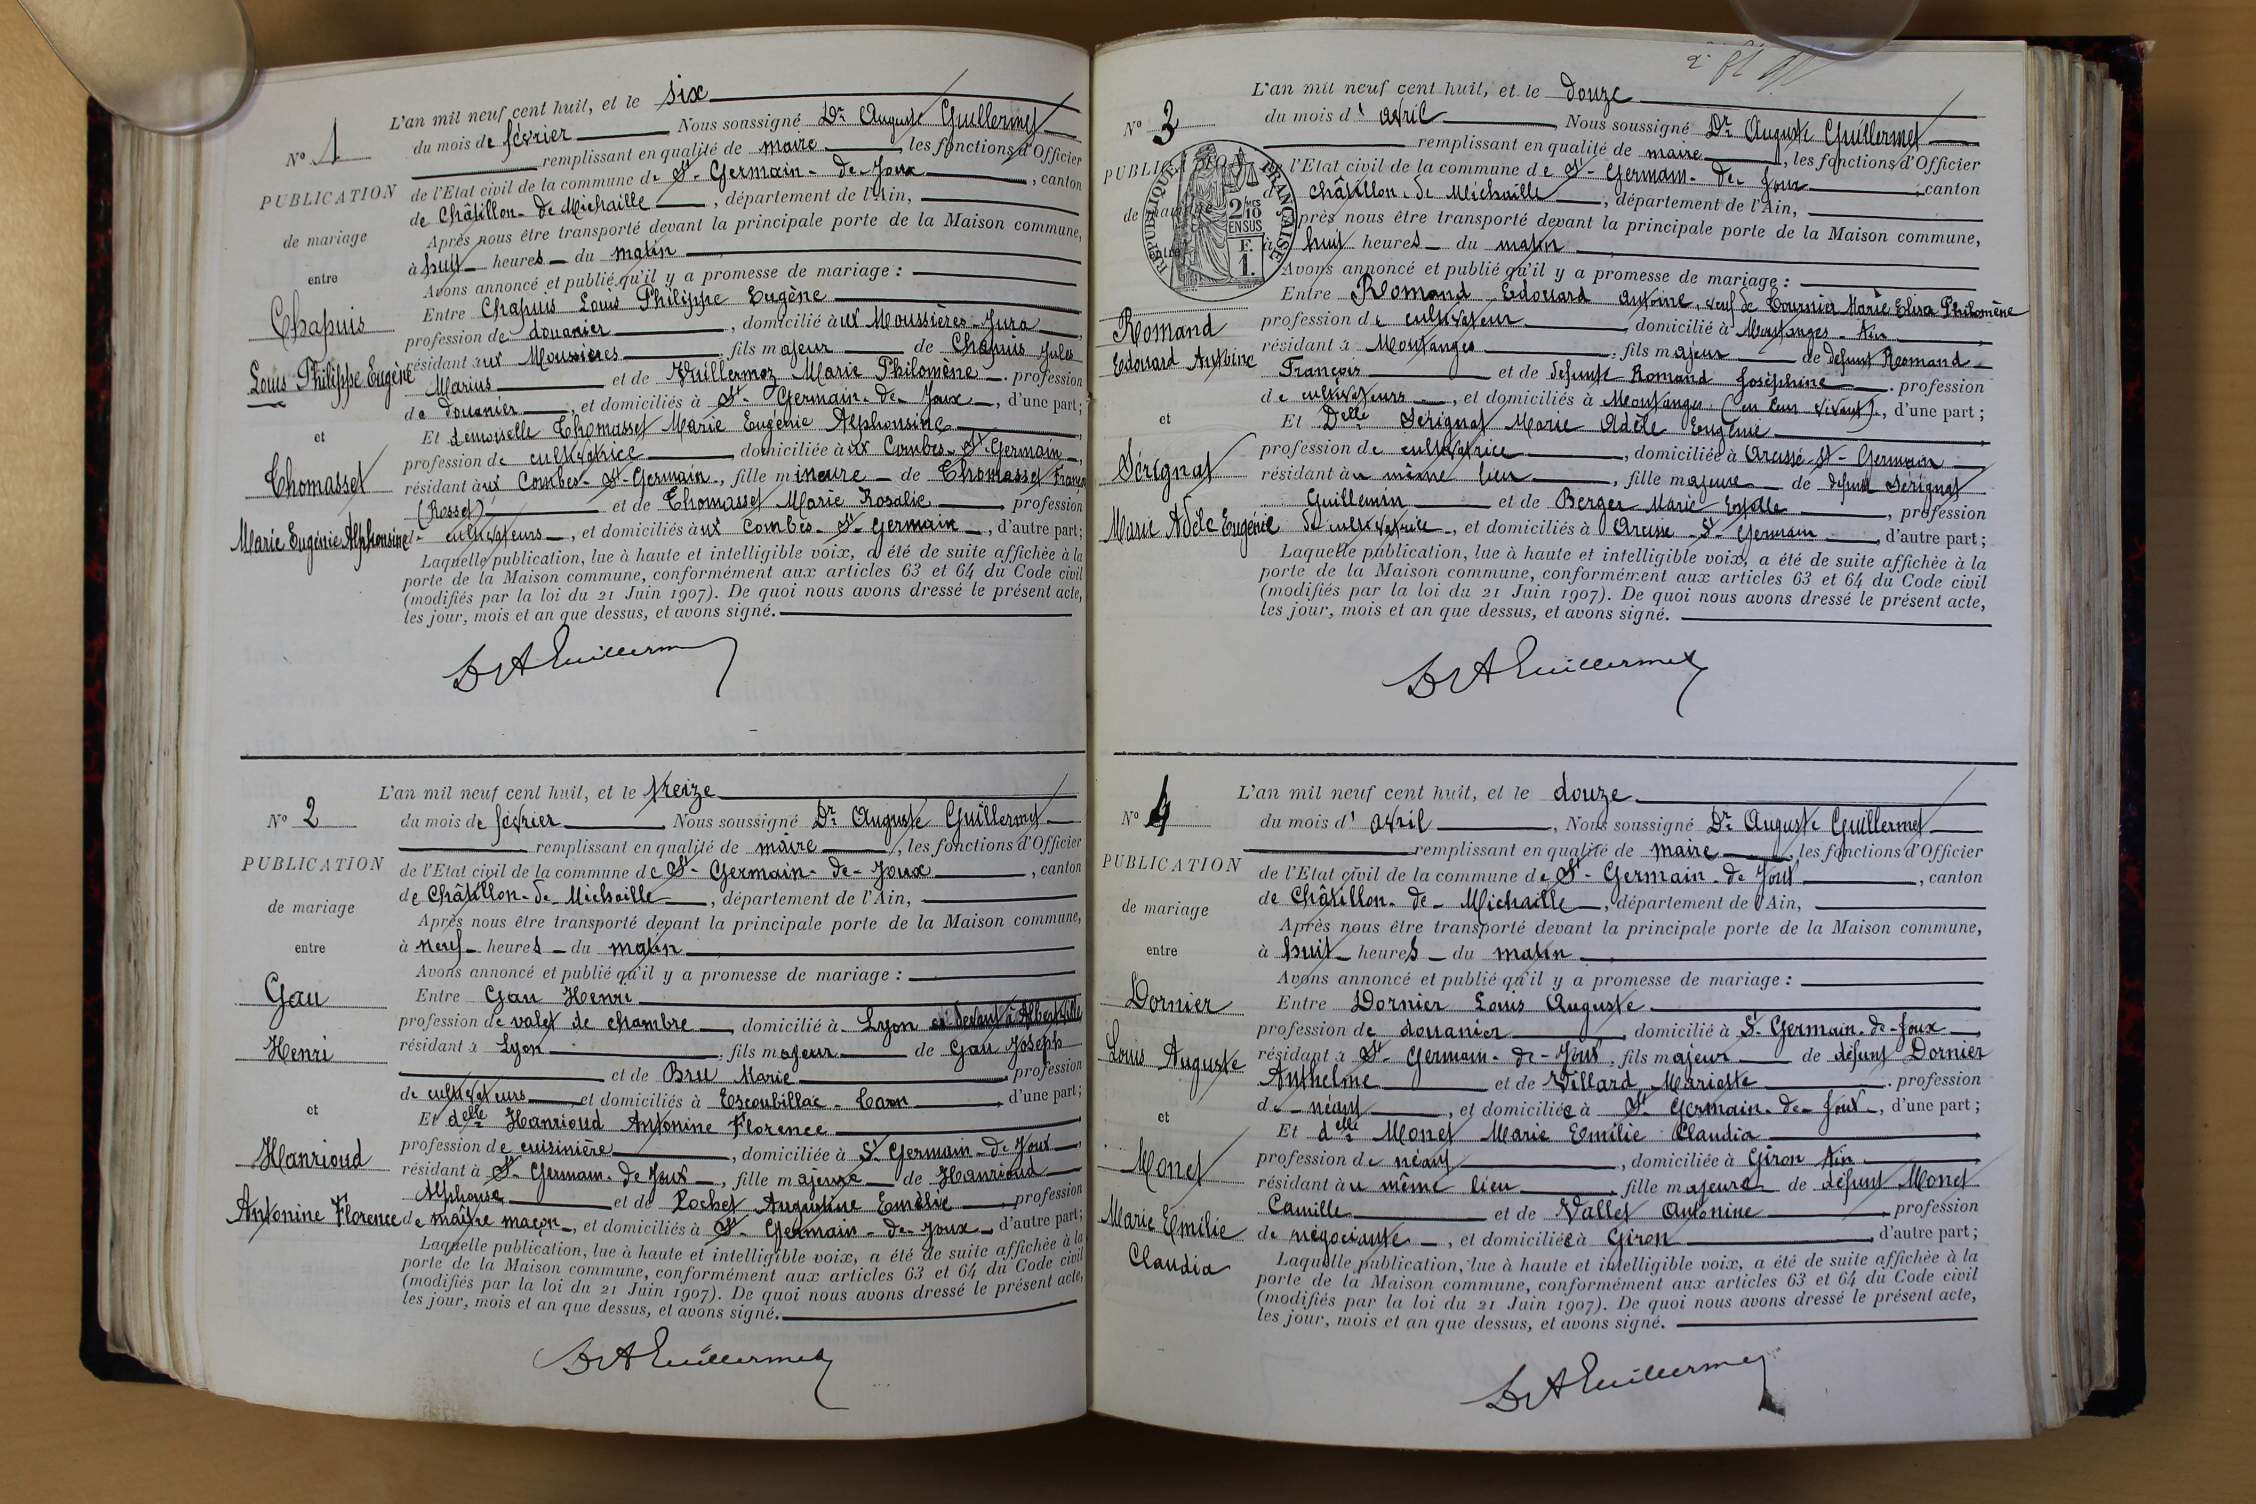 L'an mil neuf cent huit, et le six
du mois de février Nous soussigné Dr Auguste Guillermet
remplissant en qualité de maire, les fonctions d'Officier
de l'Etat civil de la commune de St-Germain-de-Joux, canton
de Châtillon-de Michaille, département de l'Ain,
Après nous être transporté devant la principale porte de la Maison commune,
à huit heures du matin
Avons annoncé et publié qu'il y a promesse de mariage :
Entre Chapuis Louis Philippe Eugène
profession de douanier, domicilié aux Moussières-Jura,
résidant aux Moussières, fils majeur de Chapuis Jules
Marius et de Vuillermoz Marie Philomène, profession
de douanier, et domiciliés à St-Germain-de-Joux, d'une part;
Et demoiselle Thomasset Marie Eugénie Alphonsine,
profession de cultivatrice domiciliée aux Combes-St-Germain,
résidant aux Combes-St-Germain, fille mineure de Thomasset
(Rosset) et de Thomasset Marie Rosalie, profession
cultivateurs, et domiciliés aux Combes-St-Germain, d'autre part;
Laquelle publication, lue à haute et intelligible voix, a été de suite affichée à la
porte de la Maison commune, conformément aux articles 63 et 64 du Code civil
(modifiés par la loi du 21 Juin 1907). De quoi nous avons dressé le présent acte,
les jour, mois et an que dessus, et avons signé.
No 1
PUBLICATION
de mariage
entre
Chapuis
Louis Philippe Eugène
et
Thomasset
Marie Eugénie Alphonsine
Dr A Guillermet
L'an mil neuf cent huit, et le treize
du mois de février, Nous soussigné Dr Auguste Guillermet
remplissant en qualité de maire, les fonctions d'Officier
de l'Etat civil de la commune de St-Germain-de-Joux, canton
de Châtillon-de Michaille, département de l'Ain,
Après nous être transporté devant la principale porte de la Maison commune,
à neuf heures du matin
Avons annoncé et publié qu'il y a promesse de mariage :
Entre Gau Henri
profession de valet de chambre domicilié à Lyon
résidant à Lyon, fils majeur de Gau Joseph
et de Bru Marie, profession
de cultivateurs, et domiciliés à Escoubillac-Tarn, d'une part;
Et delle Hanrioud Antonine Florence
profession de cuisinière, domiciliée à St Germain-de Joux,
résidant à St-Germain-de Joux, fille majeure de Hanrioud
Alphonse et de Pochet Augustine, profession
de maître maçon, et domiciliés à St-Germain-de-Joux d'autre part;
Laquelle publication, lue à haute et intelligible voix, a été de suite affichée à la
porte de la Maison commune, conformément aux articles 63 et 64 du Code civil
(modifiés par la loi du 21 Juin 1907). De quoi nous avons dressé le présent acte,
les jour, mois et an que dessus, et avons signé.
No 2
PUBLICATION
de mariage
entre
Gau
Henri
et
Hanrioud
Antonine Florence
Dr A Guillermet
L'an mil neuf cent huit, et le douze
du mois d'avril Nous soussigné Dr Auguste Guillermet
remplissant en qualité de maire, les fonctions d'Officier
de l'Etat civil de la commune de St-Germain-de Joux canton
de Châtillon-de Michaille, département de l'Ain,
Après nous être transporté devant la principale porte de la Maison commune,
à huit heures du matin
Avons annoncé et publié qu'il y a promesse de mariage :
Entre Romand Edouard Antoine, veuf de Tournier Marie Elisa Philomène
profession de cultivateur domicilié à Montanges-Ain,
résidant à Montanges, fils majeur de défunt Romand
François et de défunte Romand Joséphine, profession
de cultivateurs, et domiciliés à Montanges (en leur vivant), d'une part;
Et Delle Sérignat Marie Adèle Eugénie,
profession de cultivatrice, domiciliée à St-Germain
résidant au même lieu, fille majeure de défunt Sérignat
Guillemin et de Berger Marie, profession
de cultivatrice, et domiciliés à St-Germain, d'autre part;
Laquelle publication, lue à haute et intelligible voix, a été de suite affichée à la
porte de la Maison commune, conformément aux articles 63 et 64 du Code civil
(modifiés par la loi du 21 Juin 1907). De quoi nous avons dressé le présent acte,
les jour, mois et an que dessus, et avons signé.
No 3
PUBLICATION
de mariage
entre
RÉPUBLIQUE FRANÇAISE
2/10
EN SUS
F.
1.
Romand
Edouard Antoine
et
Sérignat
Marie Adèle Eugénie
Dr A Guillermet
L'an mil neuf cent huit, et le douze
du mois d'avril, Nous soussigné Dr Auguste Guillermet
remplissant en qualité de maire, les fonctions d'Officier
de l'Etat civil de la commune de St-Germain-de Joux, canton
de Châtillon-de-Michaille, département de l'Ain,
Après nous être transporté devant la principale porte de la Maison commune,
à huit heures du matin
Avons annoncé et publié qu'il y a promesse de mariage :
Entre Dornier Louis Auguste
profession de douanier, domicilié à St-Germain-de-Joux,
résidant à St-Germain-de-Joux, fils majeur de défunt Dornier
Anthelme et de Villard Mariette, profession
de néant, et domiciliée à St Germain-de-Joux, d'une part;
Et delle Monet Marie Emilie Claudia,
profession de néant, domiciliée à Giron Ain,
résidant au même lieu, fille majeure de défunt Monet
Camille et de Vallet Antonine, profession
de négociante, et domiciliée à Giron, d'autre part;
Laquelle publication, lue à haute et intelligible voix, a été de suite affichée à la
porte de la Maison commune, conformément aux articles 63 et 64 du Code civil
(modifiés par la loi du 21 Juin 1907). De quoi nous avons dressé le présent acte,
les jour, mois et an que dessus, et avons signé.
No 4
PUBLICATION
de mariage
entre
Dornier
Louis Auguste
et
Monet
Marie Emilie
Claudia
Dr A Guillermet